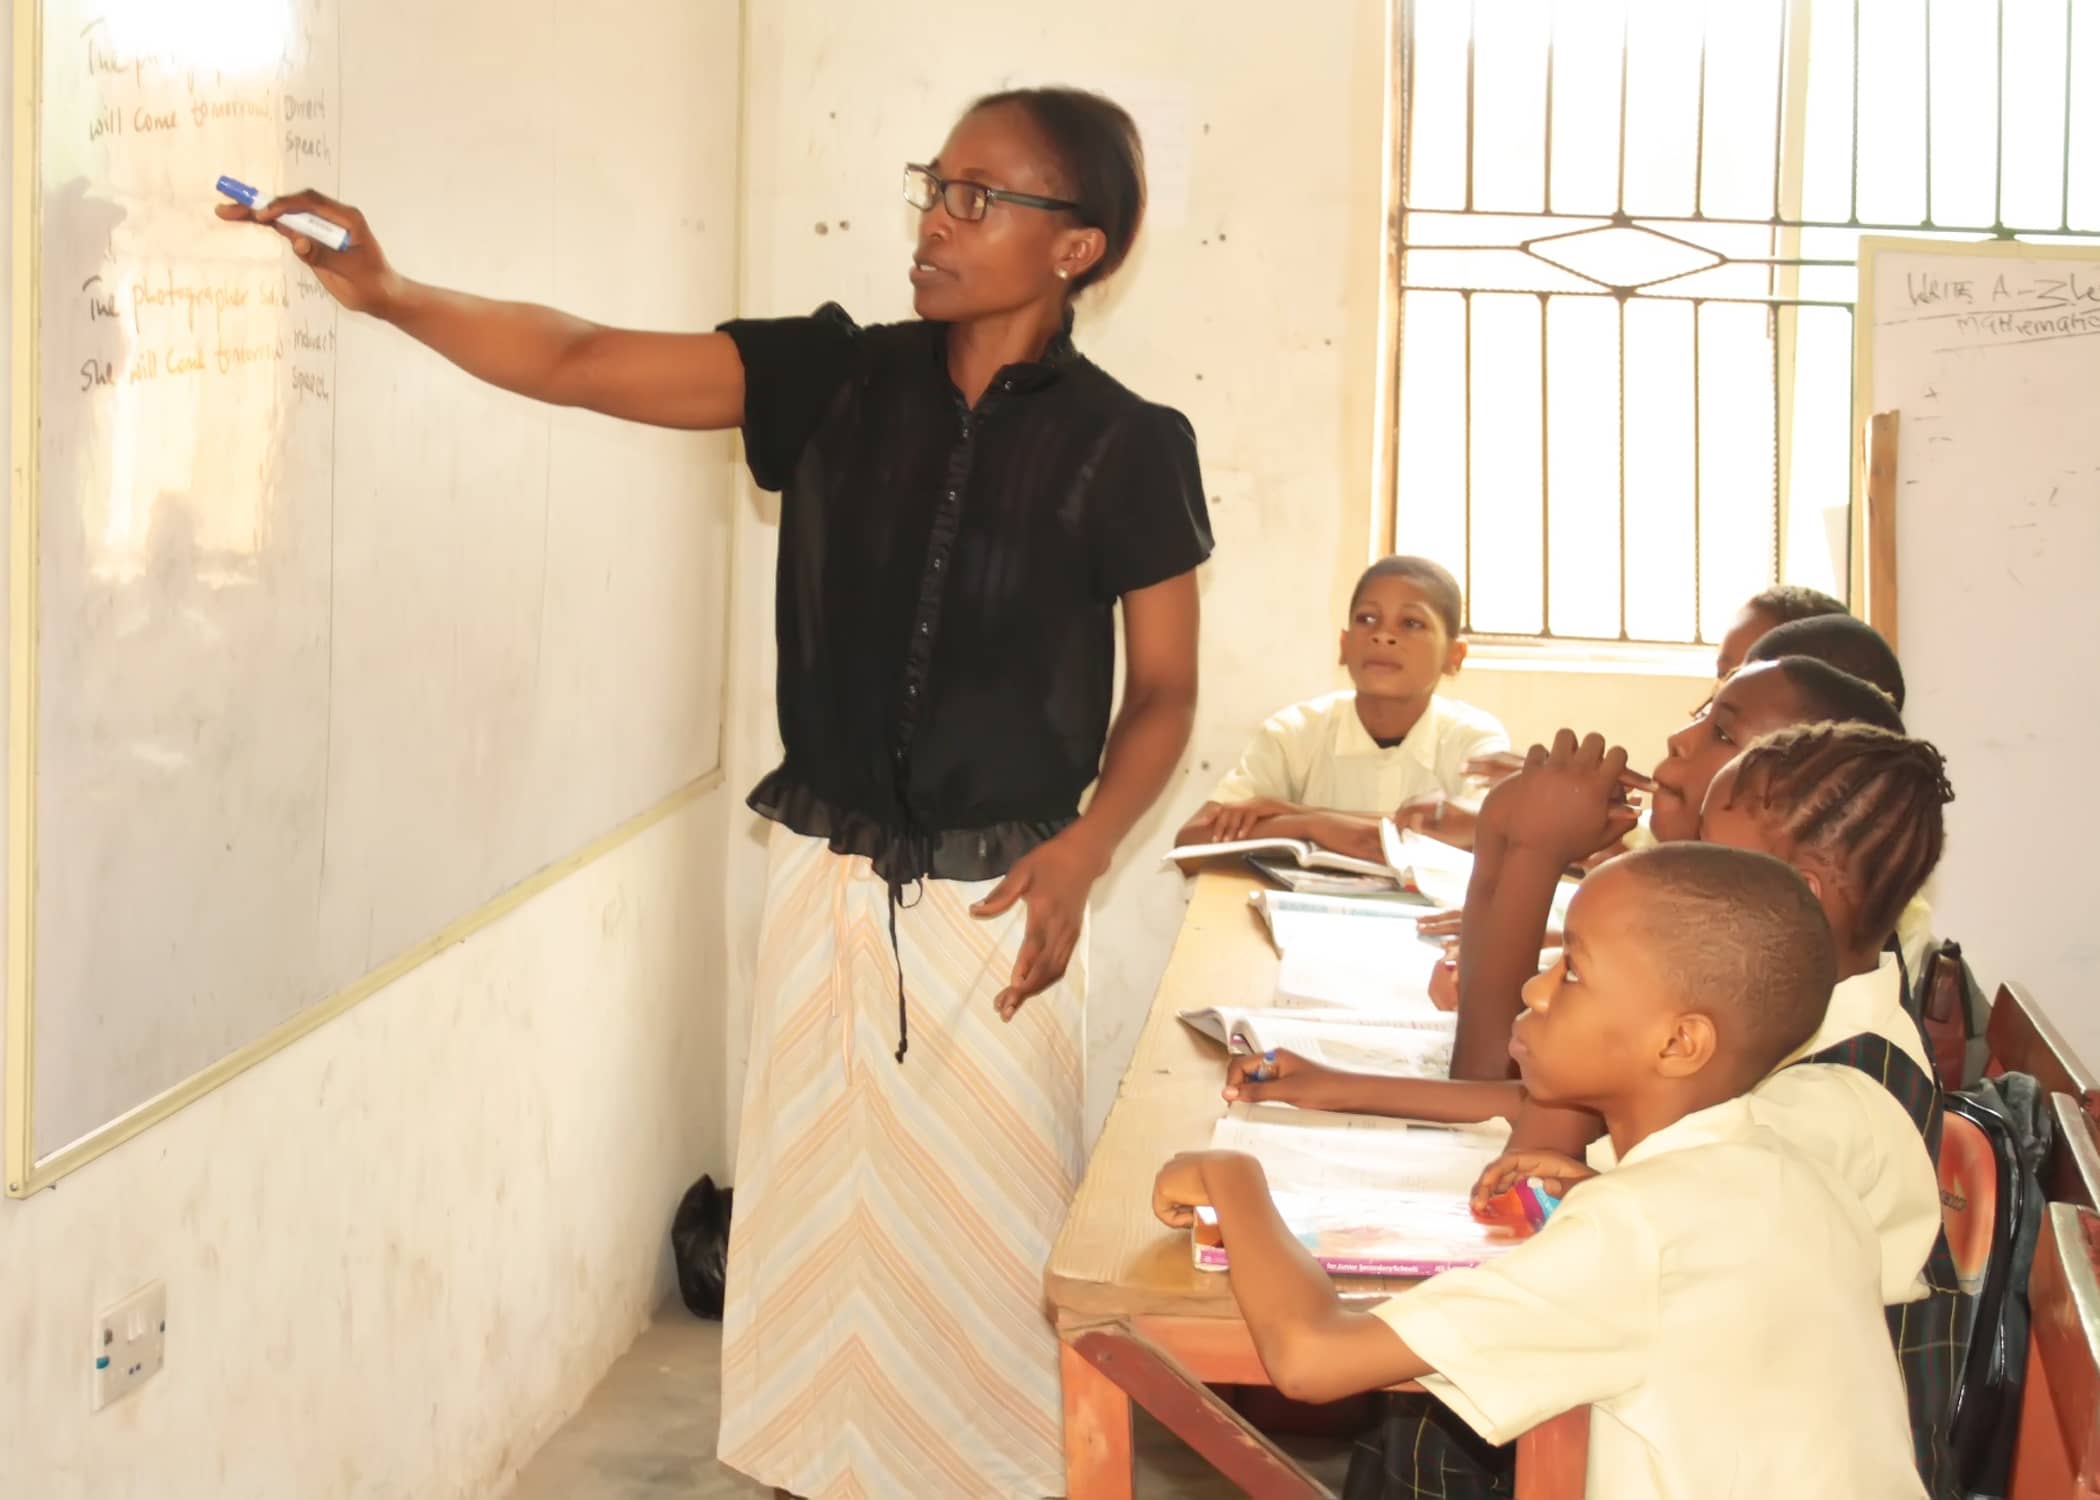 The
will come tomorrow. Direct
speech
The photographer said that
she will come tomorrow. Indirect
speech
WRITE A
Mathematic
for Junior Secondary Schools